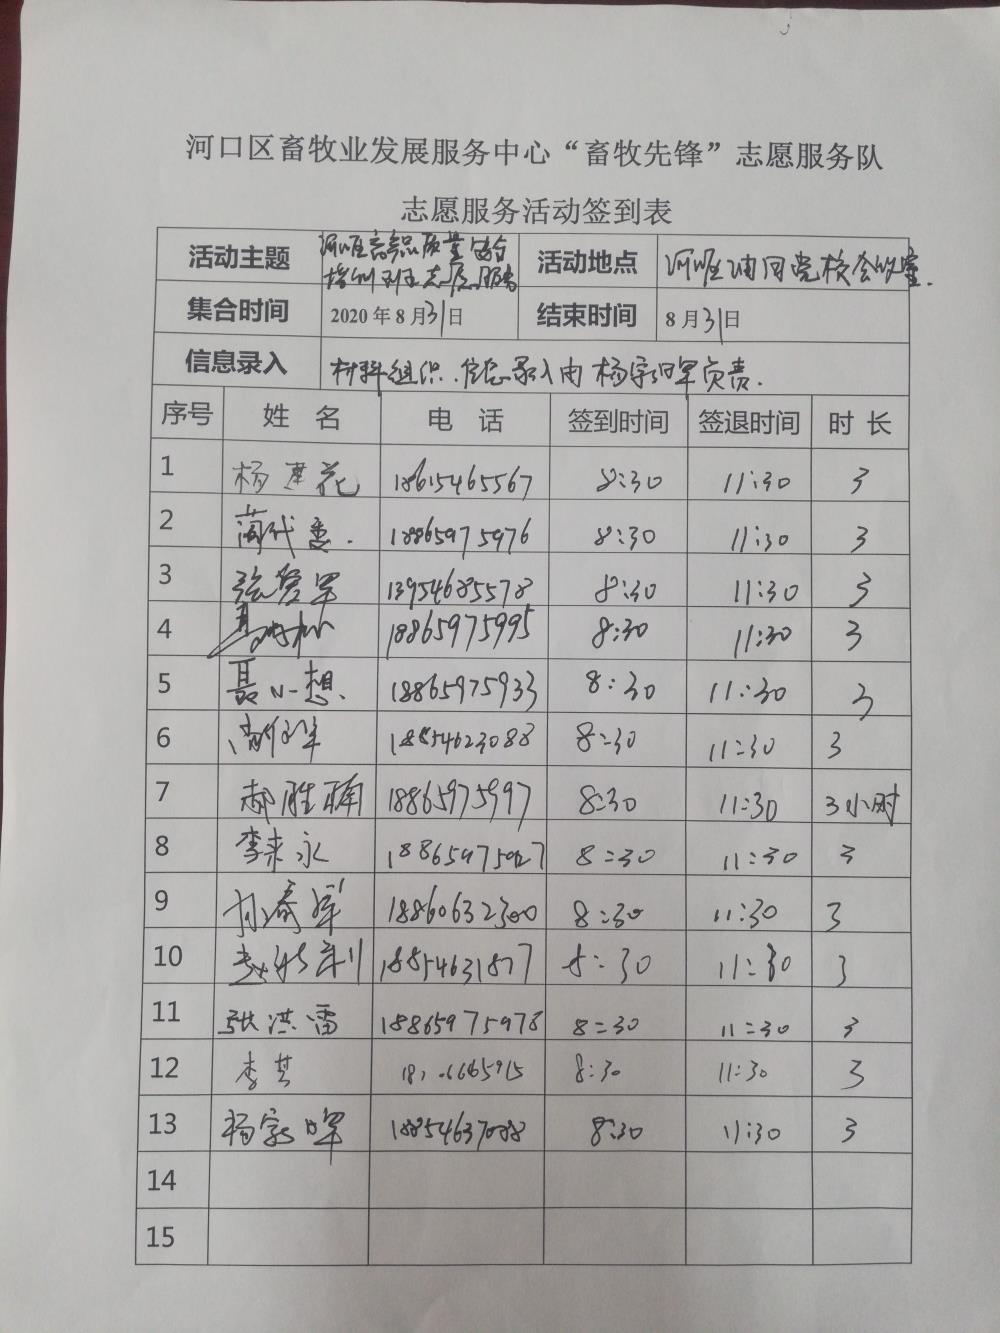 河口区畜牧业发展服务中心“畜牧先锋”志愿服务队
志愿服务活动签到表
活动主题 高品质量 培训班志愿服务 活动地点 党校会议室.
集合时间 2020年8月31日 结束时间 8月31日
信息录入 材料组织.信息录入由杨家晖负责.
序号 姓 名 电 话 签到时间 签退时间 时 长
1 杨莲花 18615465567 8:30 11:30 3
2 蔺代委. 18865975976 8:30 11:30 3
3 张爱军 13954685578 8:30 11:30 3
4 18865975995 8:30 11:30 3
5 聂小想. 18865975933 8:30 11:30 3
6 18854623088 8:30 11:30 3
7 郝胜楠 18865975997 8:30 11:30 3小时
8 李来永 18865975927 8:30 11:30 3
9 孙春晖 18860632300 8:30 11:30 3
10 18854631877 8:30 11:30 3
11 张洪雷 18865975978 8:30 11:30 3
12 李 8:30 11:30 3
13 杨家晖 18854637088 8:30 11:30 3
14
15